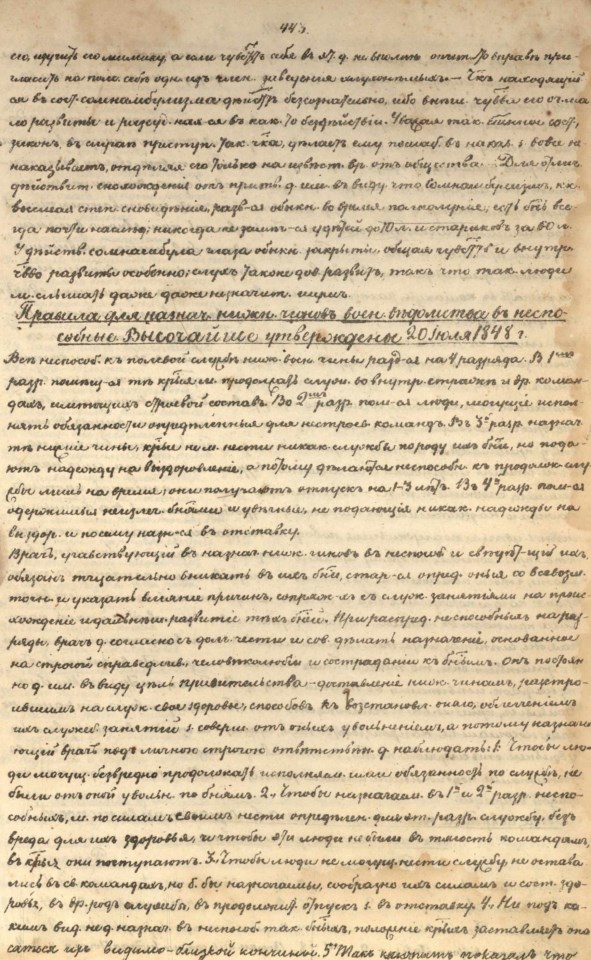 443.
его изучить его мимику, а если чувств. себя въ эт. д. не вполнѣ опытн. то вправѣ при-
гласить на пом. себѣ одн. изъ член. заведения глухонѣмыхъ. — Чкъ находящій
ся въ сост. сомнамбулизма дѣйств. безсознательно, ибо внѣш. чувства его очень ма
ло развиты и разсуд. нах-ся въ как. то бездѣйствіи. Уважая так. сост,
законъ, въ случаѣ приступ. так. чка, дѣлаетъ ему послаб. въ наказ. и вовсе не
наказываетъ, отдѣляя его только на извѣст. вр. отъ общества. Для отлич.
дѣйствит. снохожденія отъ притв. д. им. въ виду, что сомнамбулизмъ, какъ
высшая степ. сновидѣнія, разв-ся обыкн. во время полнолунія; есть все-
гда почти наслѣд; никогда не замѣч-ся у дѣтей до 10 л. и стариковъ за 60 л.
У дѣйств. сомнамбула глаза обыкн. закрыты, общая чувств. и внутр.
чувство развиты особенно; слухъ также дов. развитъ, такъ что так. люди
м. слышать даже даже незначит. шумъ.
Правила для назнач. нижн. чиновъ воен. вѣдомства въ неспо-
собные Высочайше утверждены 20 Іюля 1848 г.
Всѣ неспособ. къ полевой службѣ ниж. воен. чины разд-ся на 4 разряда. Въ 1мъ
разр. помѣщ-ся тѣ, кои м. продолжать служ. во внутр. стражѣ и др. коман-
дахъ, имѣющихъ строевой составъ. Во 2мъ разр. пом-ся люди, могущіе испол-
нять обязанности опредѣленныя для нестроев. командъ. Въ 3й разр. назнач.
тѣ нижніе чины, кои не м. нести никак. службы по роду ихъ бни, но пода-
ютъ надежду на выздоровленіе, а потому дѣлаются неспособн. къ продолж. слу
жбы лишь на время; они получаютъ отпускъ на 1-3 лѣтъ. Въ 4й разр. пом-ся
одержимые неизлеч. бнями и увѣчные, не подающіе никак. надежды на
выздор. и посему назн-ся въ отставку.
Врачъ, участвующій въ назнач. ниж. чиновъ въ неспособ. и свидѣт-щій ихъ,
обязанъ тщательно вникать въ ихъ бни, стар-ся опред. оныя со всевозм.
точн. и указать вліяніе причинъ, сопряж-хъ съ служ. занятіями на проис-
хожденіе и дальнѣйш. развитіе тѣхъ бней. При распред. неспособныхъ на раз-
ряды, врачъ д. согласно съ долг. чести и сов. дѣлать назначеніе, основанное
на строгой справедлив., человѣколюбіи и состраданіи къ бнымъ. Онъ постоян
но д. им. въ виду цѣль правительства — доставленіе ниж. чинамъ, разстро-
ившимъ на служ. свое здоровье, способовъ къ возстановл. онаго, облегченіемъ
ихъ служеб. занятій и соверш. отъ оныхъ увольненіемъ, а потому назнача
ющій врачъ подъ личною строгою отвѣтств. д. наблюдать: 1. Чтобы лю-
ди могущ. безвредно продолжать исполняем. ими обязанность по службѣ, не
были отъ оной увольн. по бнямъ. 2. Чтобы назначаем. въ 1й и 2й разр. неспо-
собныхъ, м. по силамъ своимъ нести опредѣлен. для эт. разр. службу, безъ
вреда для ихъ здоровья, и чтобы эти люди не были въ тягость командамъ,
въ кои они поступаютъ. 3. Чтобы люди не могущ. нести службу не остава
лись въ св. командахъ, но б. бы назначаемы, сообразно ихъ силамъ и сост. здо-
ровья, въ др. родъ службы, въ продолжит. отпускъ и въ отставку. 4. Ни подъ ка-
кимъ вид. не д. назнач. въ неспособ. так. бныхъ, положеніе коихъ заставляетъ опа
саться ихъ видимо-близкой кончины. 5. Такъ какъ опытъ показалъ, что